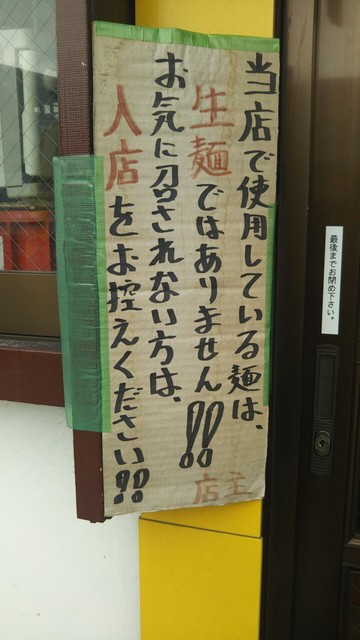 当店で使用している麺は、
生麺ではありません!!
お気に召されない方は、
入店をお控えください!!
店主
最後までお閉め下さい。